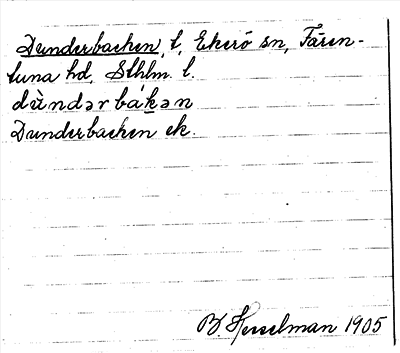 Dunderbacken, l, Ekerö sn, Fären-
tuna hd, Sthlm l.
dùndərbákən
Dunderbacken ek.
B Hesselman 1905